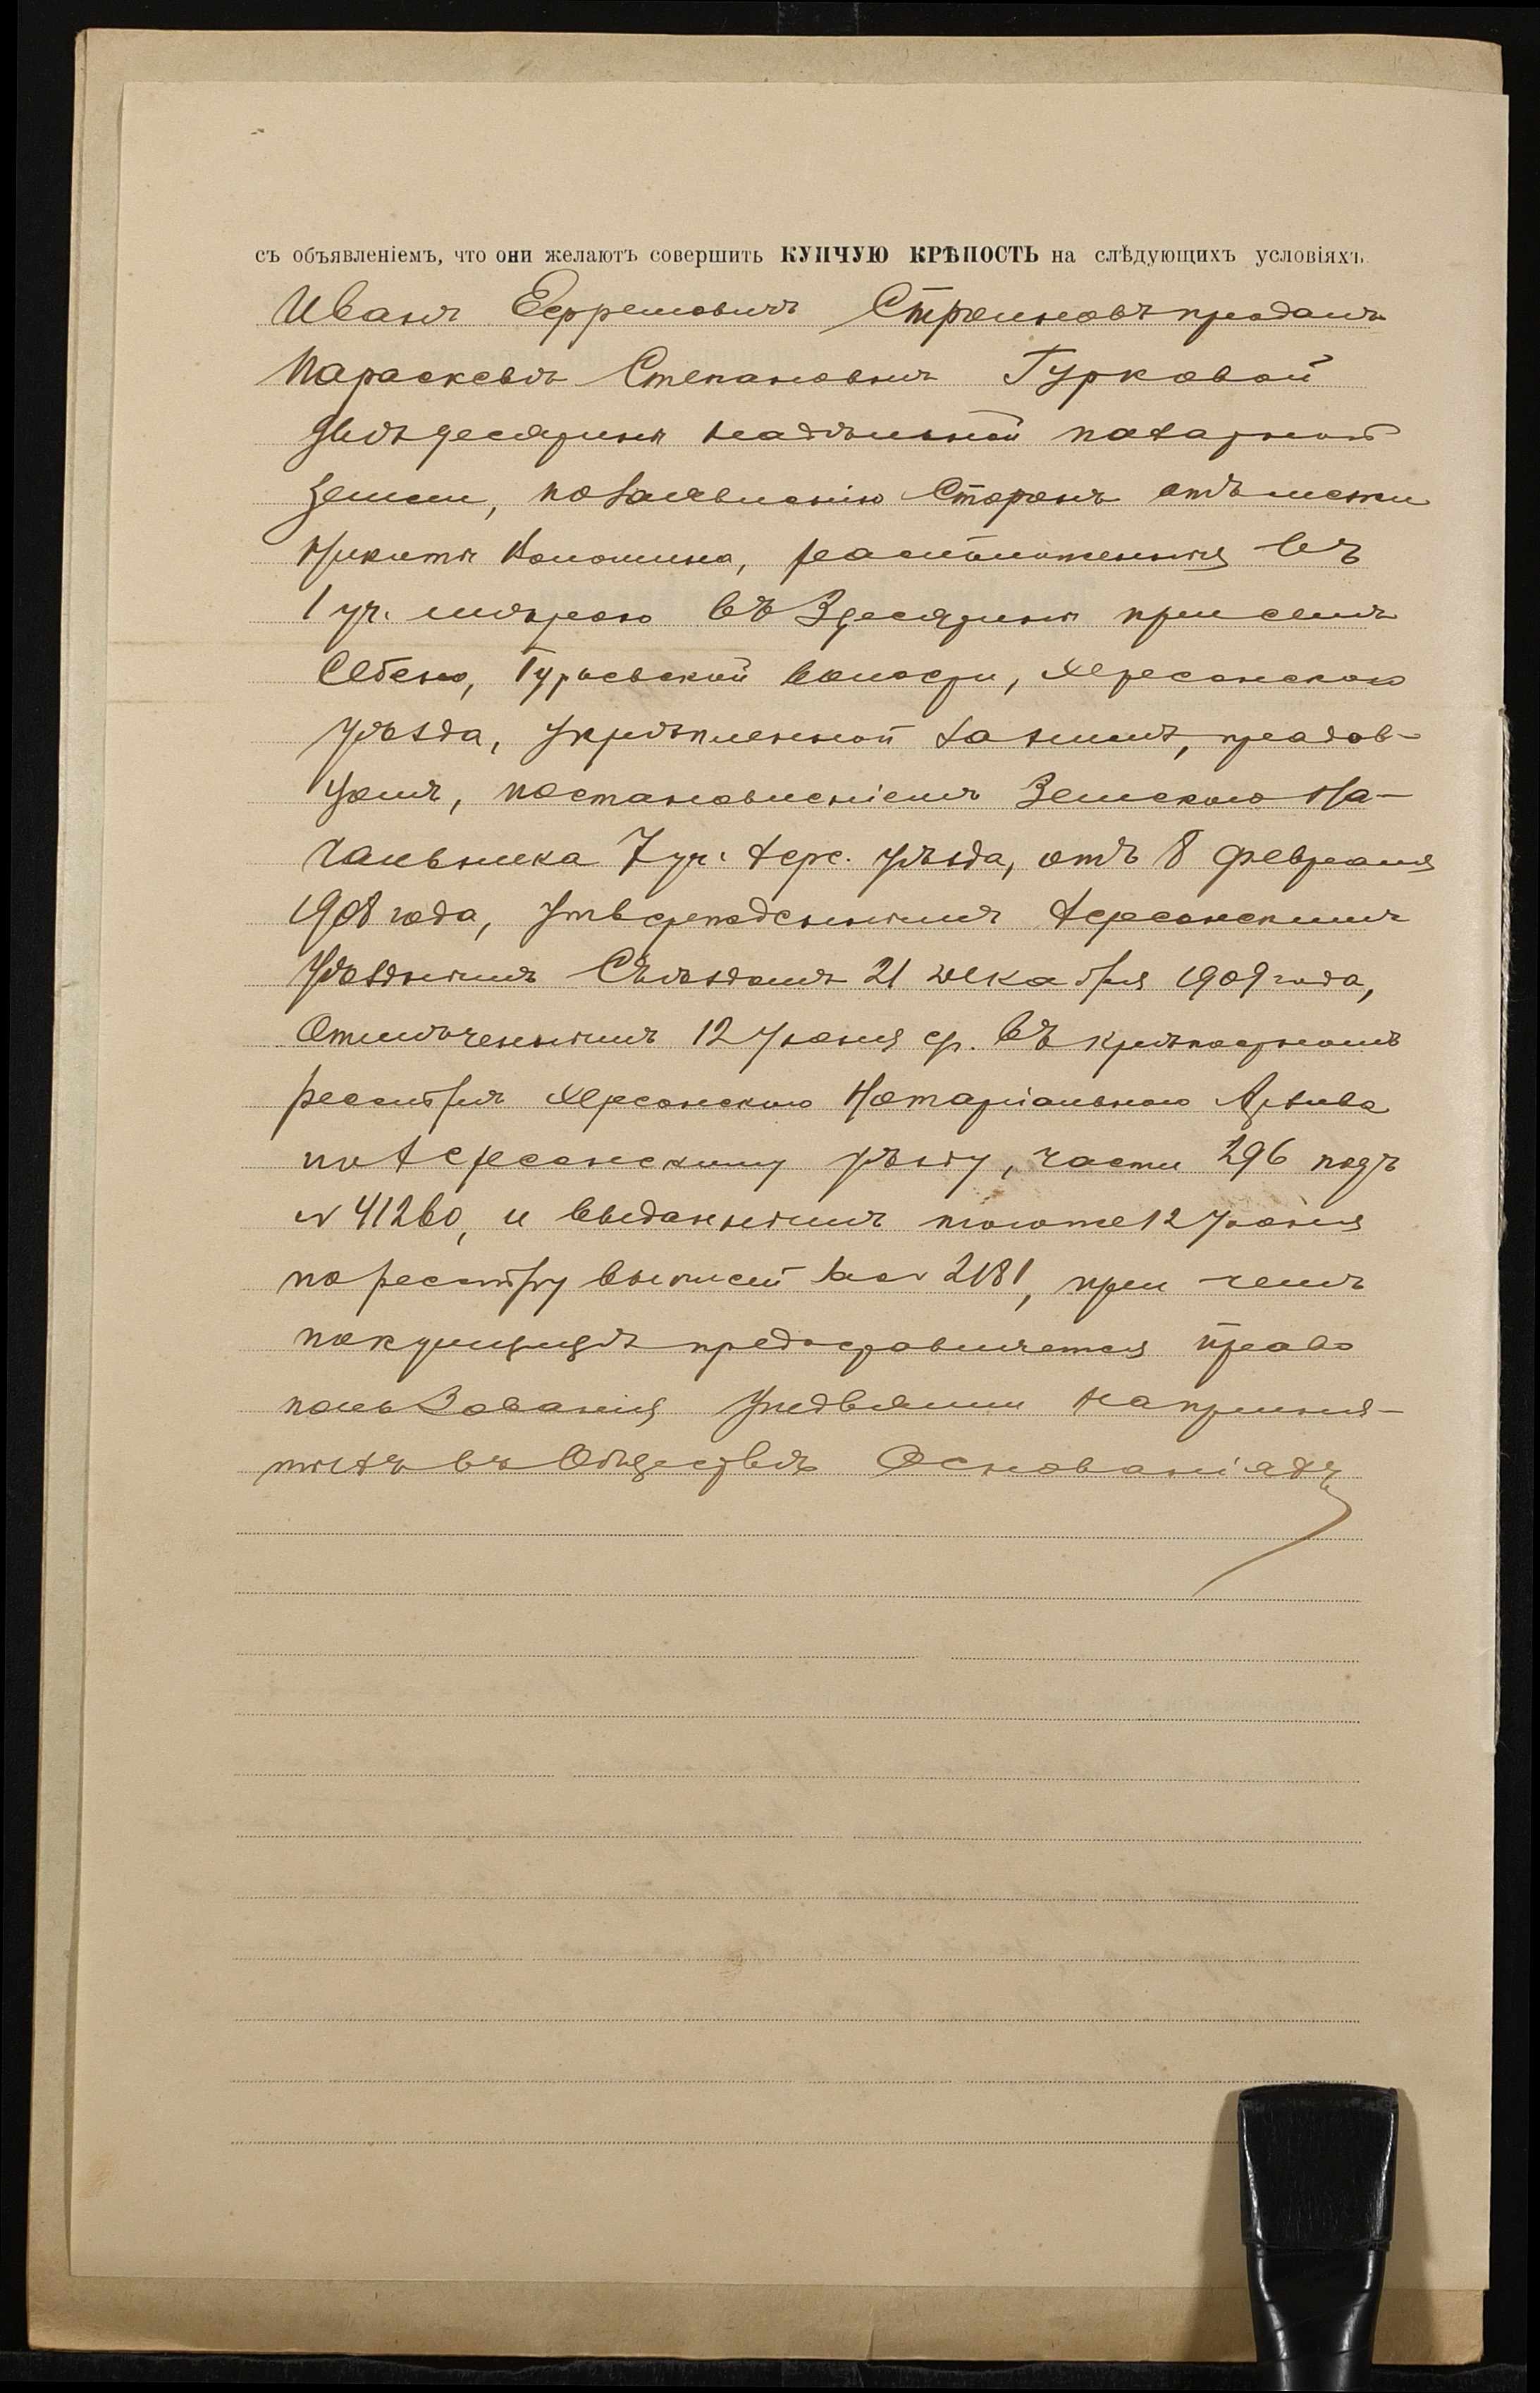 съ объявленіемъ, что они желаютъ совершить КУПЧУЮ КРѢПОСТЬ на слѣдующихъ условіяхъ
Иванъ Ефремовичъ продалъ
Параскевѣ Степановнѣ Гурковой
двѣ десятины надѣльной пахатной
земли, по заявленію сторонъ отъ межи
Никиты расположенныя въ
1 уч. мѣрою въ 3 десятины при селѣ
Себено, Гурьевской волости, Херсонскаго
уѣзда, укрѣпленной за нимъ, продав-
цомъ, постановленіемъ Земскаго На-
чальника 7 уч. Херс. уѣзда, отъ 8 февраля
1908 года, утвержденнымъ Херсонскимъ
Уѣзднымъ Съѣздомъ 21 декабря 1909 года,
отмѣченнымъ 12 Іюня ср. въ крѣпостномъ
реестрѣ Херсонскаго Нотаріальнаго Архива
по Херсонскому уѣзду, части 296 подъ
№ 41260, и выданнымъ того же 12 Іюня
по реестру выписей за № 2181, при чемъ
покупщицѣ предоставляется право
пользованія угодьями на приня-
тыхъ въ Обществѣ Основаніяхъ